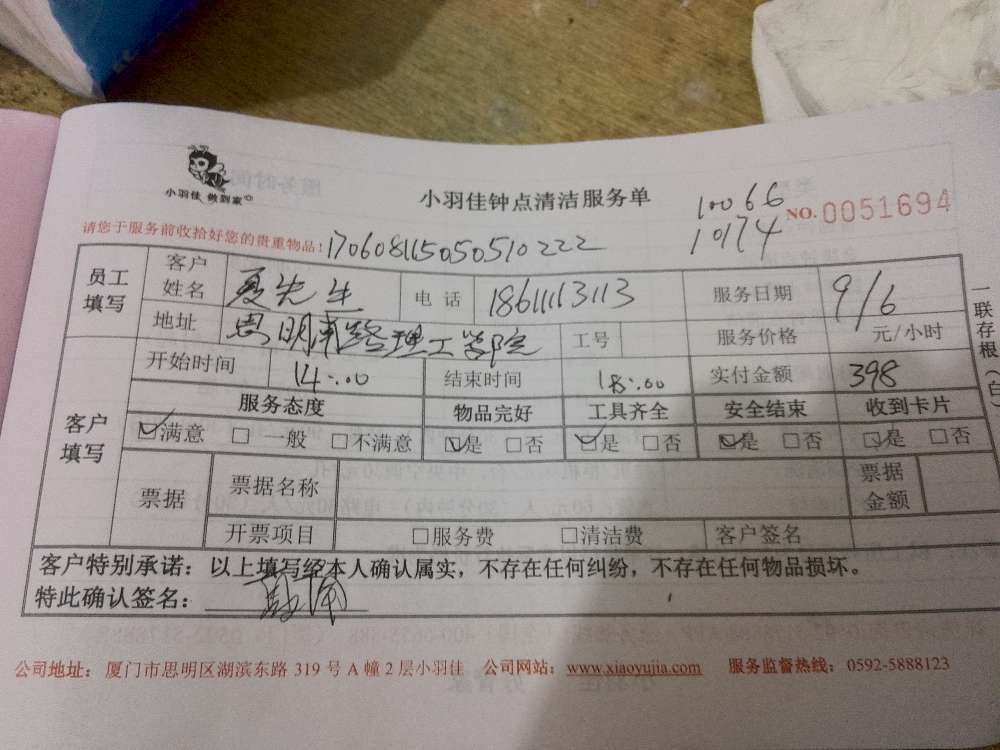 小羽佳 做到家
小羽佳钟点清洁服务单
10066
10174
NO. 0051694
请您于服务前收拾好您的贵重物品!
170608115050510222
员工填写 客户姓名 夏先生 电话 18611113113 服务日期 9/6
地址 思明南路理工学院 工号 服务价格 元/小时
客户填写 开始时间 14:00 结束时间 18:00 实付金额 398
服务态度 物品完好 工具齐全 安全结束 收到卡片
☑满意 □一般 □不满意 ☑是 □否 ☑是 □否 ☑是 □否 ☑是 □否
票据 票据名称 票据金额
开票项目 □服务费 □清洁费 客户签名
客户特别承诺：以上填写经本人确认属实，不存在任何纠纷，不存在任何物品损坏。
特此确认签名：
一联存根（白
公司地址：厦门市思明区湖滨东路 319 号 A 幢 2 层小羽佳 公司网站：www.xiaoyujia.com 服务监督热线：0592-5888123